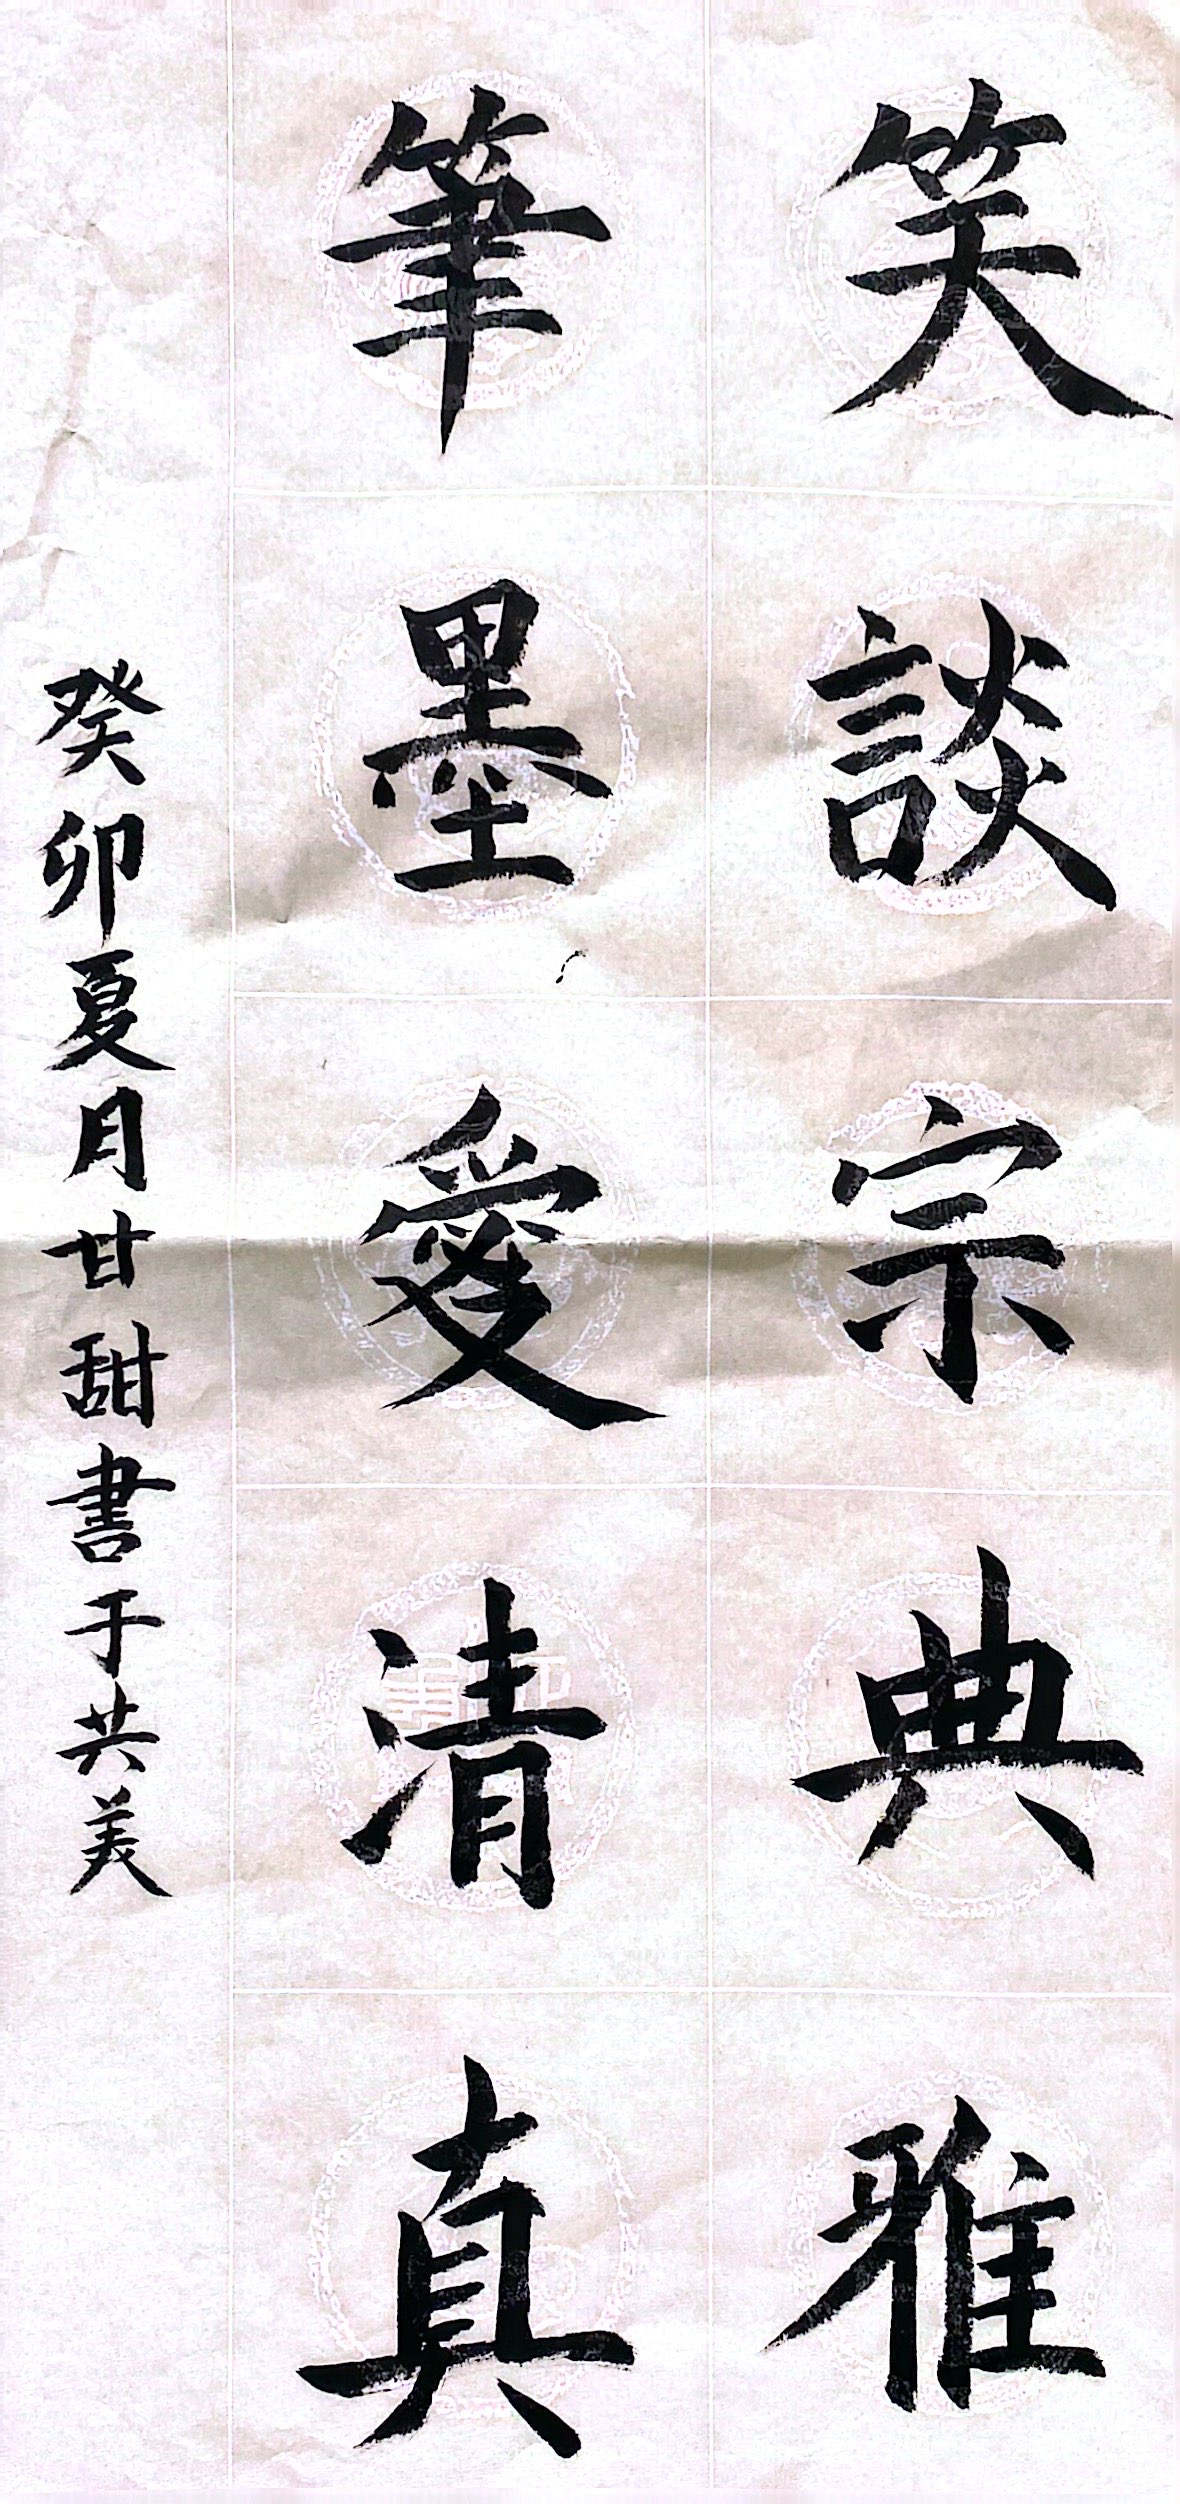 笑談宗典雅
筆墨愛清真
癸卯夏月甘甜書于共美